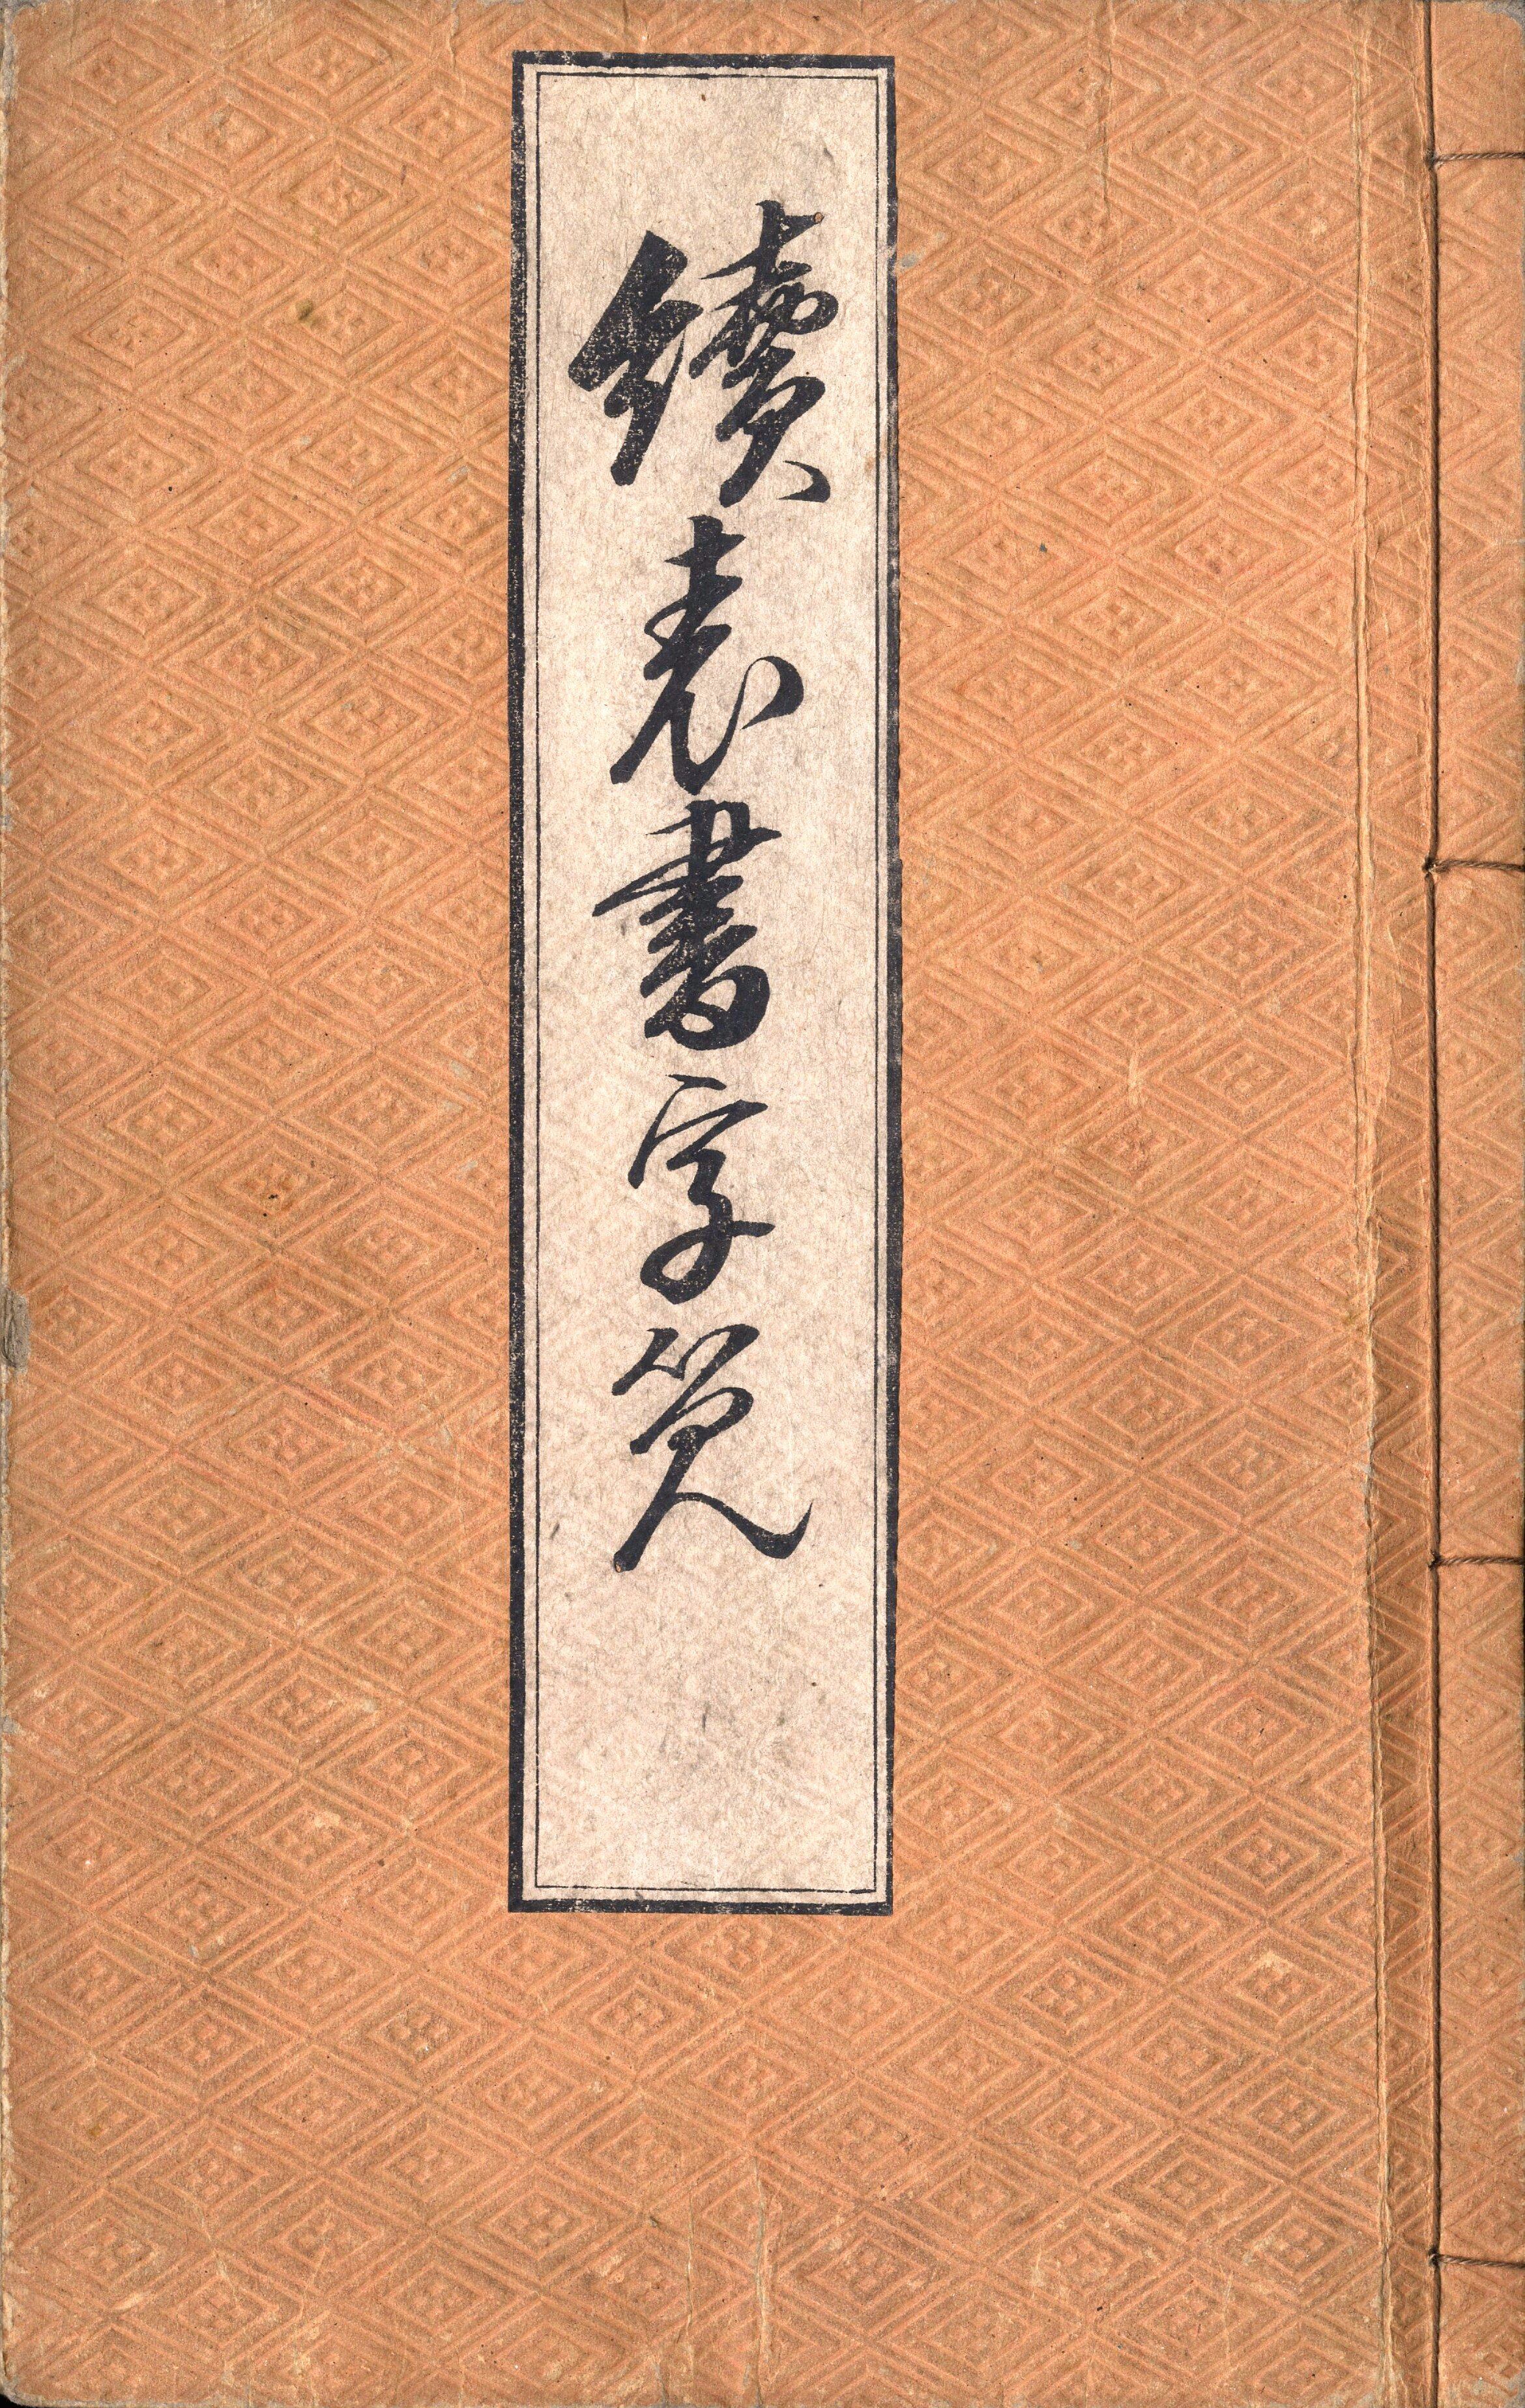 續表書字覧